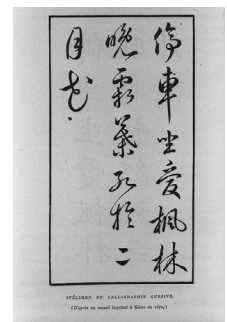 停車坐愛楓林
晚霜葉紅於二
月花
SPÉCIMEN DE CALLIGRAPHIE CURSIVE.
(D'après un imprimé à Kioto en